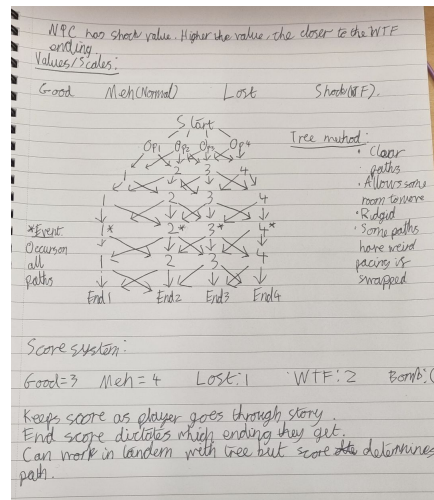 NPC has shock value. Higher the value, the closer to the WTF
ending
Values/Scales:
Good Meh(Normal) Lost Shock(WTF).
Start
Op1 Op2 Op3 Op4
1 2 3 4
1 2 3 4
*Event 1* 2* 3* 4*
Occurs on
all 1 2 3 4
paths
End1 End2 End3 End4
Tree method:
• Clear
paths
• Allows some
room to move
• Ridgid
• Some paths
have weird
pacing is
swapped
Score system:
Good=3 Meh=4 Lost:1 WTF:2 Bomb:
Keeps score as player goes through story.
End score dictates which ending they get.
Can work in tandem with tree but score determines
path.